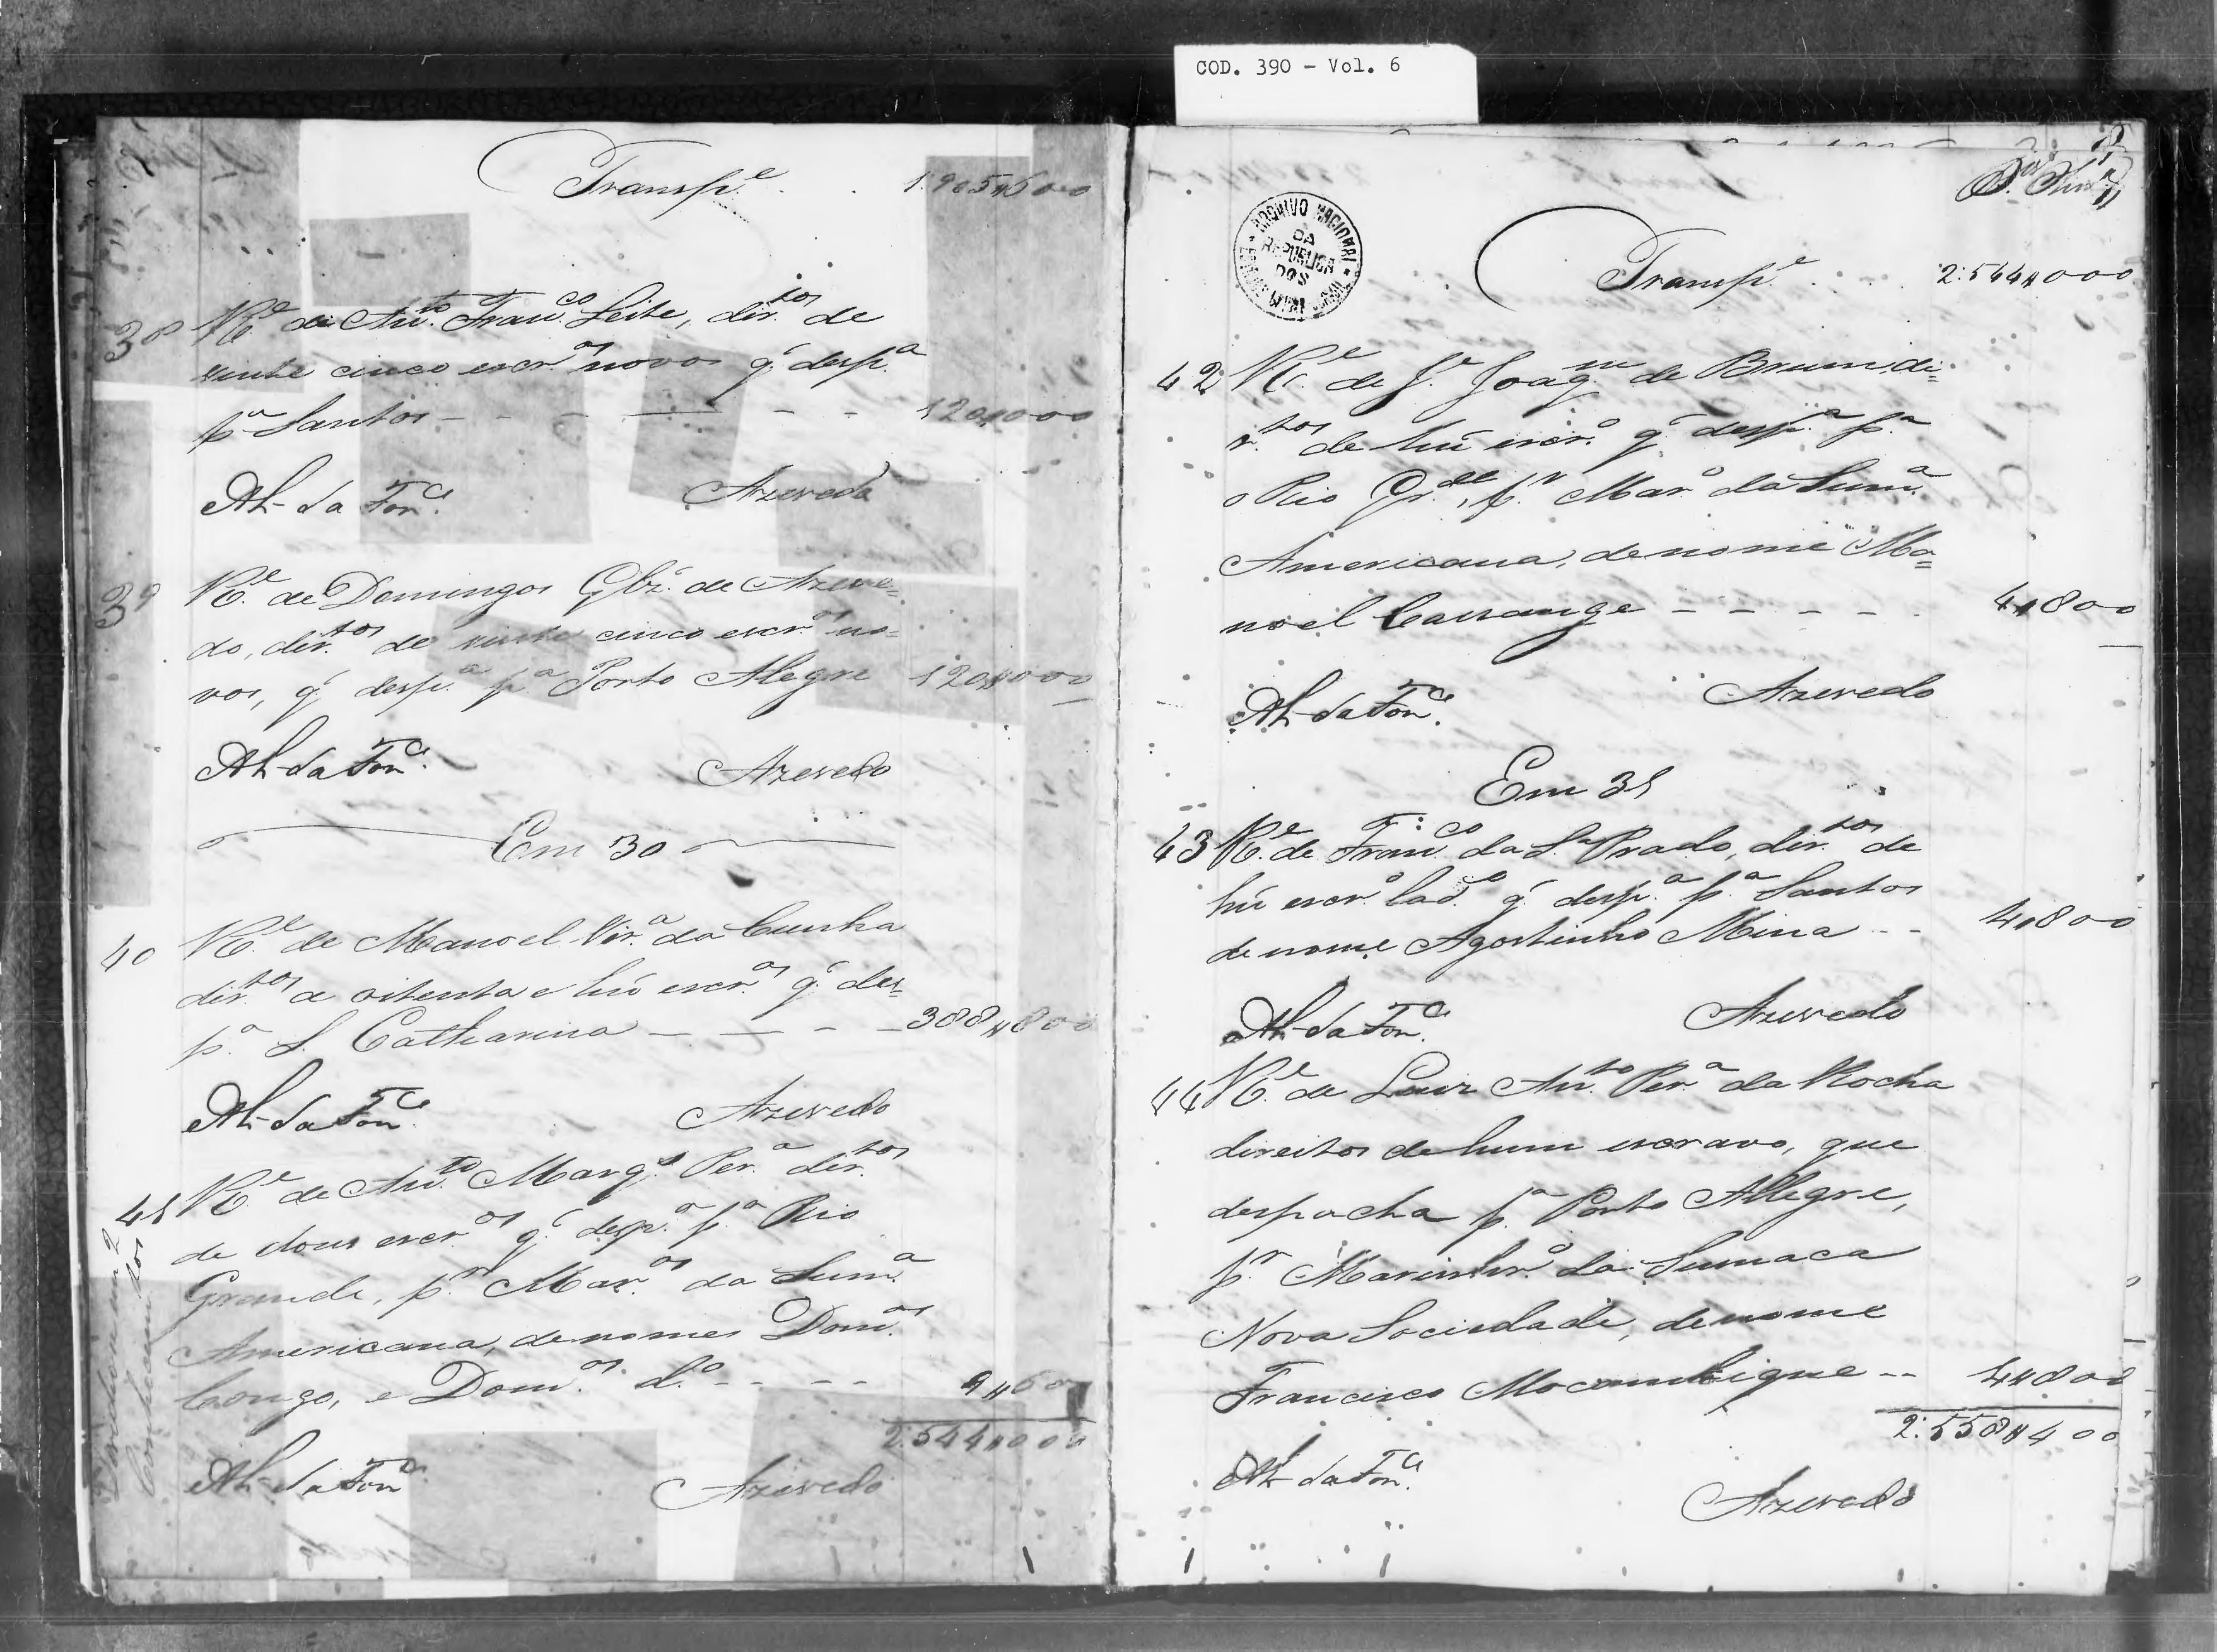 COD. 390 - Vol. 6
Transp.e 1.905#600
38 R.e de Ant.o Fran.co Leite, dir.tos de
vinte cinco escr.os novos q' desp.a
p.a Santos - - - - 120#000
Azevedo
39 R.e de Domingos Glz' de Azeve=
do, dir.tos de vinte cinco escr.os no=
vos, q' desp.a p.a Porto Alegre 120#000
Azevedo
Em 30
40 R.e de Manoel Vir.a da Cunha
dir.tos de oitenta e hú escr.os q' des=
p.a S. Catharina - - - - 388#800
Azevedo
41 R.e de Ant.o Marq.s Per.a dir.tos
de dous escr.os q' desp.a p.a Rio
Grande, p.r Mar.os da Sum.a
Americana, de nomes Dom.os
Congo, e Dom.os d.o - - - - 9#600
2:544#000
Azevedo
ARCHIVO NACIONAL
DA
REPUBLICA
DOS
Transp.e 2:544#000
42 R.e de J.e Joaq.m de Brum, di=
r.tos de hú escr.o q' desp.a p.a
o Rio Gr.de, p.r Mar.o da Sum.a
Americana, de nome Ma=
noel Cassange - - - - - 4#800
Azevedo
Em 31
43 R.e de Fran.co da S.a Prado, dir.tos de
hú escr.o lad.o q' desp.a p.a Santos
de nome Agostinho Mina - - 4#800
Azevedo
44 R.e de Luiz Ant.o Per.a da Rocha
direitos de hum escravo, que
despacha p.a Porto Allegre,
p.r Marinhr.o da Sumaca
Nova Sociedade, de nome
Francisco Mocambique - - 4#800
2:558#400
Azevedo